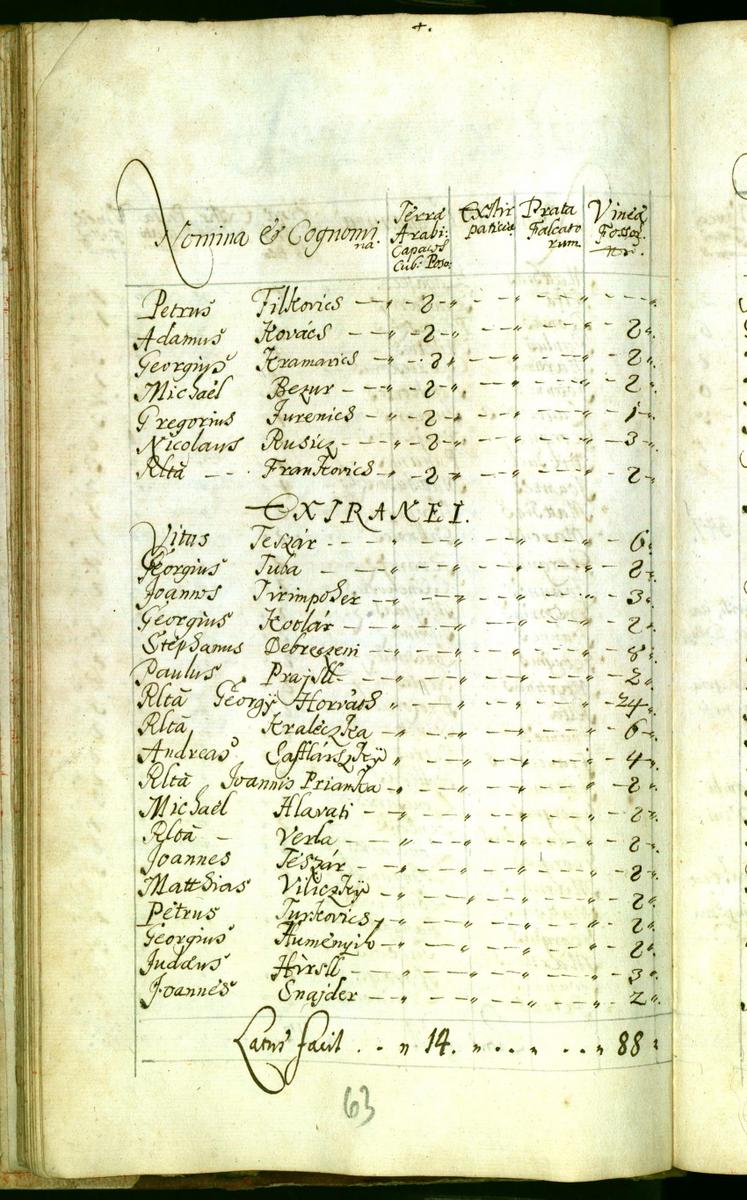 Nomina & Cognomi
na
Terrae
Arabi:
Capaces
Cub: Poso:
Extir
paticiae
Prata
Falcato
rum
Vineae
Fossor.
nr.
Petrus Filkovics — " 2 "
Adamus Kovács — " 2 " — — " — — " — 2 "
Georgius Kramarics — " 2 " — — " — — " — 2 "
Michaël Bezur — " 2 " — — " — — " — 2 "
Gregorius Jurenics — " 2 " — — " — — " — 1 "
Nicolaus Rusicz — " 2 " — — " — — " — 3 "
Rltã Frankovics — " 2 " — — " — — " — 2 "
EXTRANEI.
Vitus Teszár — " — " — " — " — 6 "
Georgius Tuba — " — " — " — " — 2 "
Joannes Tirimpoher — " — " — " — " — 3 "
Georgius Kotlár — " — " — " — " — 2 "
Stephanus Debreczeni — " — " — " — " — 8 "
Paulus Prajsll — " — " — " — " — 2 "
Rltã Georgÿ Horváth " — " — " — " — 24 "
Rltã Kraleczka " — " — " — " — 6 "
Andreas Safflárszkÿ " — " — " — " — 4 "
Rltã Joannis Prianka " — " — " — " — 2 "
Michaël Hlavati — " — " — " — " — 2 "
Rltã — Verla — " — " — " — " — 2 "
Joannes Teszár — " — " — " — " — 2 "
Matthias Viliczkÿ — " — " — " — " — 2 "
Petrus Turkovics — " — " — " — " — 2 "
Georgius Humenyik — " — " — " — " — 2 "
Juddus Hirsll — " — " — " — " — 3 "
Joannes Snajder — " — " — " — " — 2 "
Latus facit . . " 14. " . . . " . . . " 88 "
63